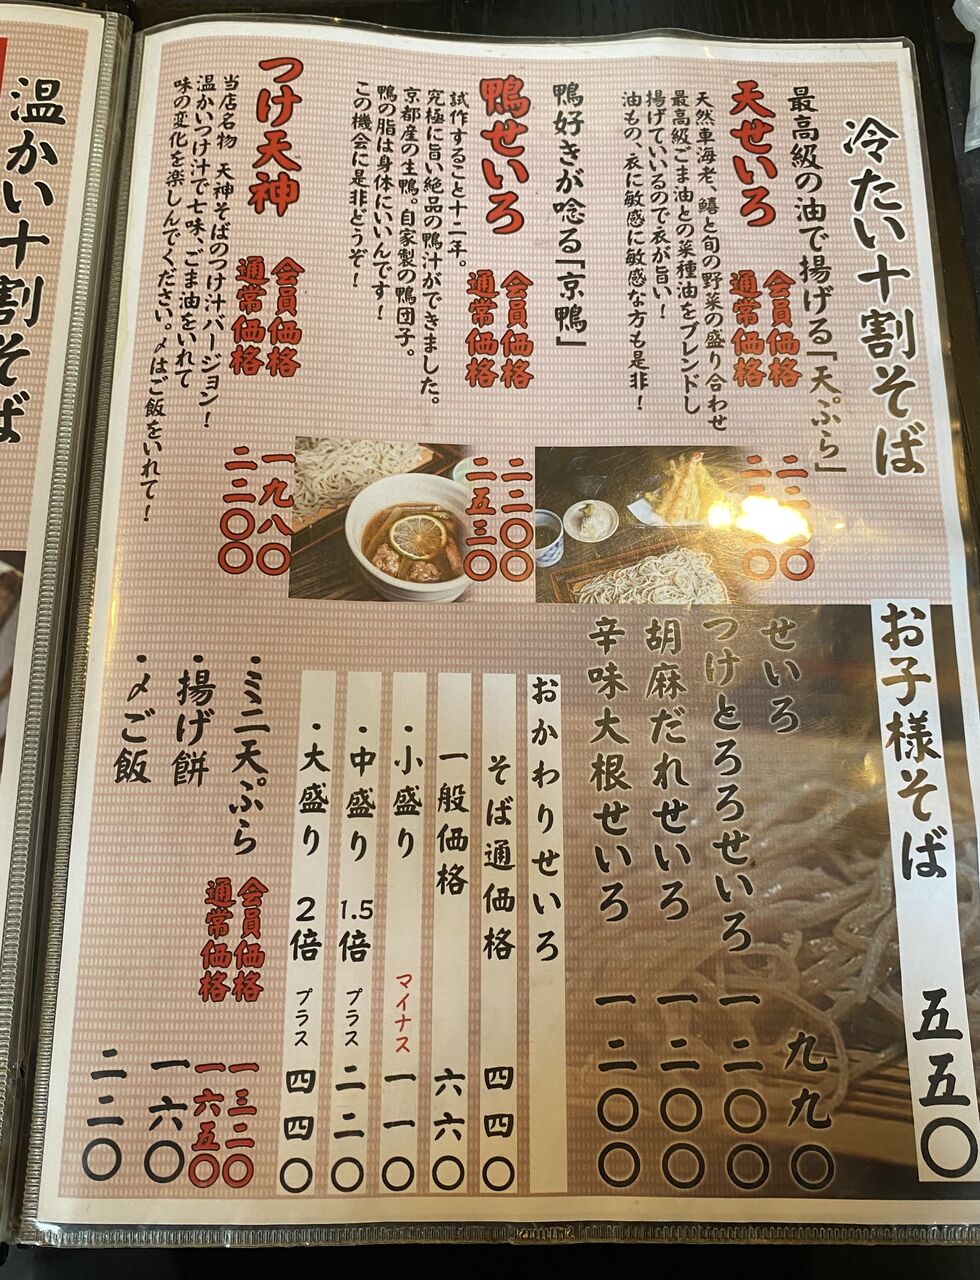 冷たい十割そば
最高級の油で揚げる「天ぷら」
天せいろ
会員価格
通常価格
天然車海老、鱚と旬の野菜の盛り合わせ
最高級ごま油との菜種油をブレンドし
揚げていいるので衣が旨い！
油もの、衣に敏感に敏感な方も是非！
鴨好きが唸る「京鴨」
鴨せいろ
会員価格 二二〇〇
通常価格 二五三〇
試作すること十二年。
究極に旨い絶品の鴨汁ができました。
京都産の生鴨。自家製の鴨団子。
鴨の脂は身体にいいんです！
この機会に是非どうぞ！
つけ天神
会員価格 一九八〇
通常価格 二二〇〇
当店名物 天神そばのつけ汁バージョン！
温かいつけ汁で七味、ごま油をいれて
味の変化を楽しんでください。〆はご飯をいれて！
お子様そば 五五〇
せいろ 九九〇
つけとろろせいろ 一二〇〇
胡麻だれせいろ 一二〇〇
辛味大根せいろ 一二〇〇
おかわりせいろ
そば通価格 四四〇
一般価格 六六〇
・小盛り マイナス 一一〇
・中盛り 1.5倍 プラス 二二〇
・大盛り 2倍 プラス 四四〇
・ミニ天ぷら 会員価格 一三二〇
通常価格 一六五〇
・揚げ餅 一六〇
・〆ご飯 二二〇
温かい十割そば